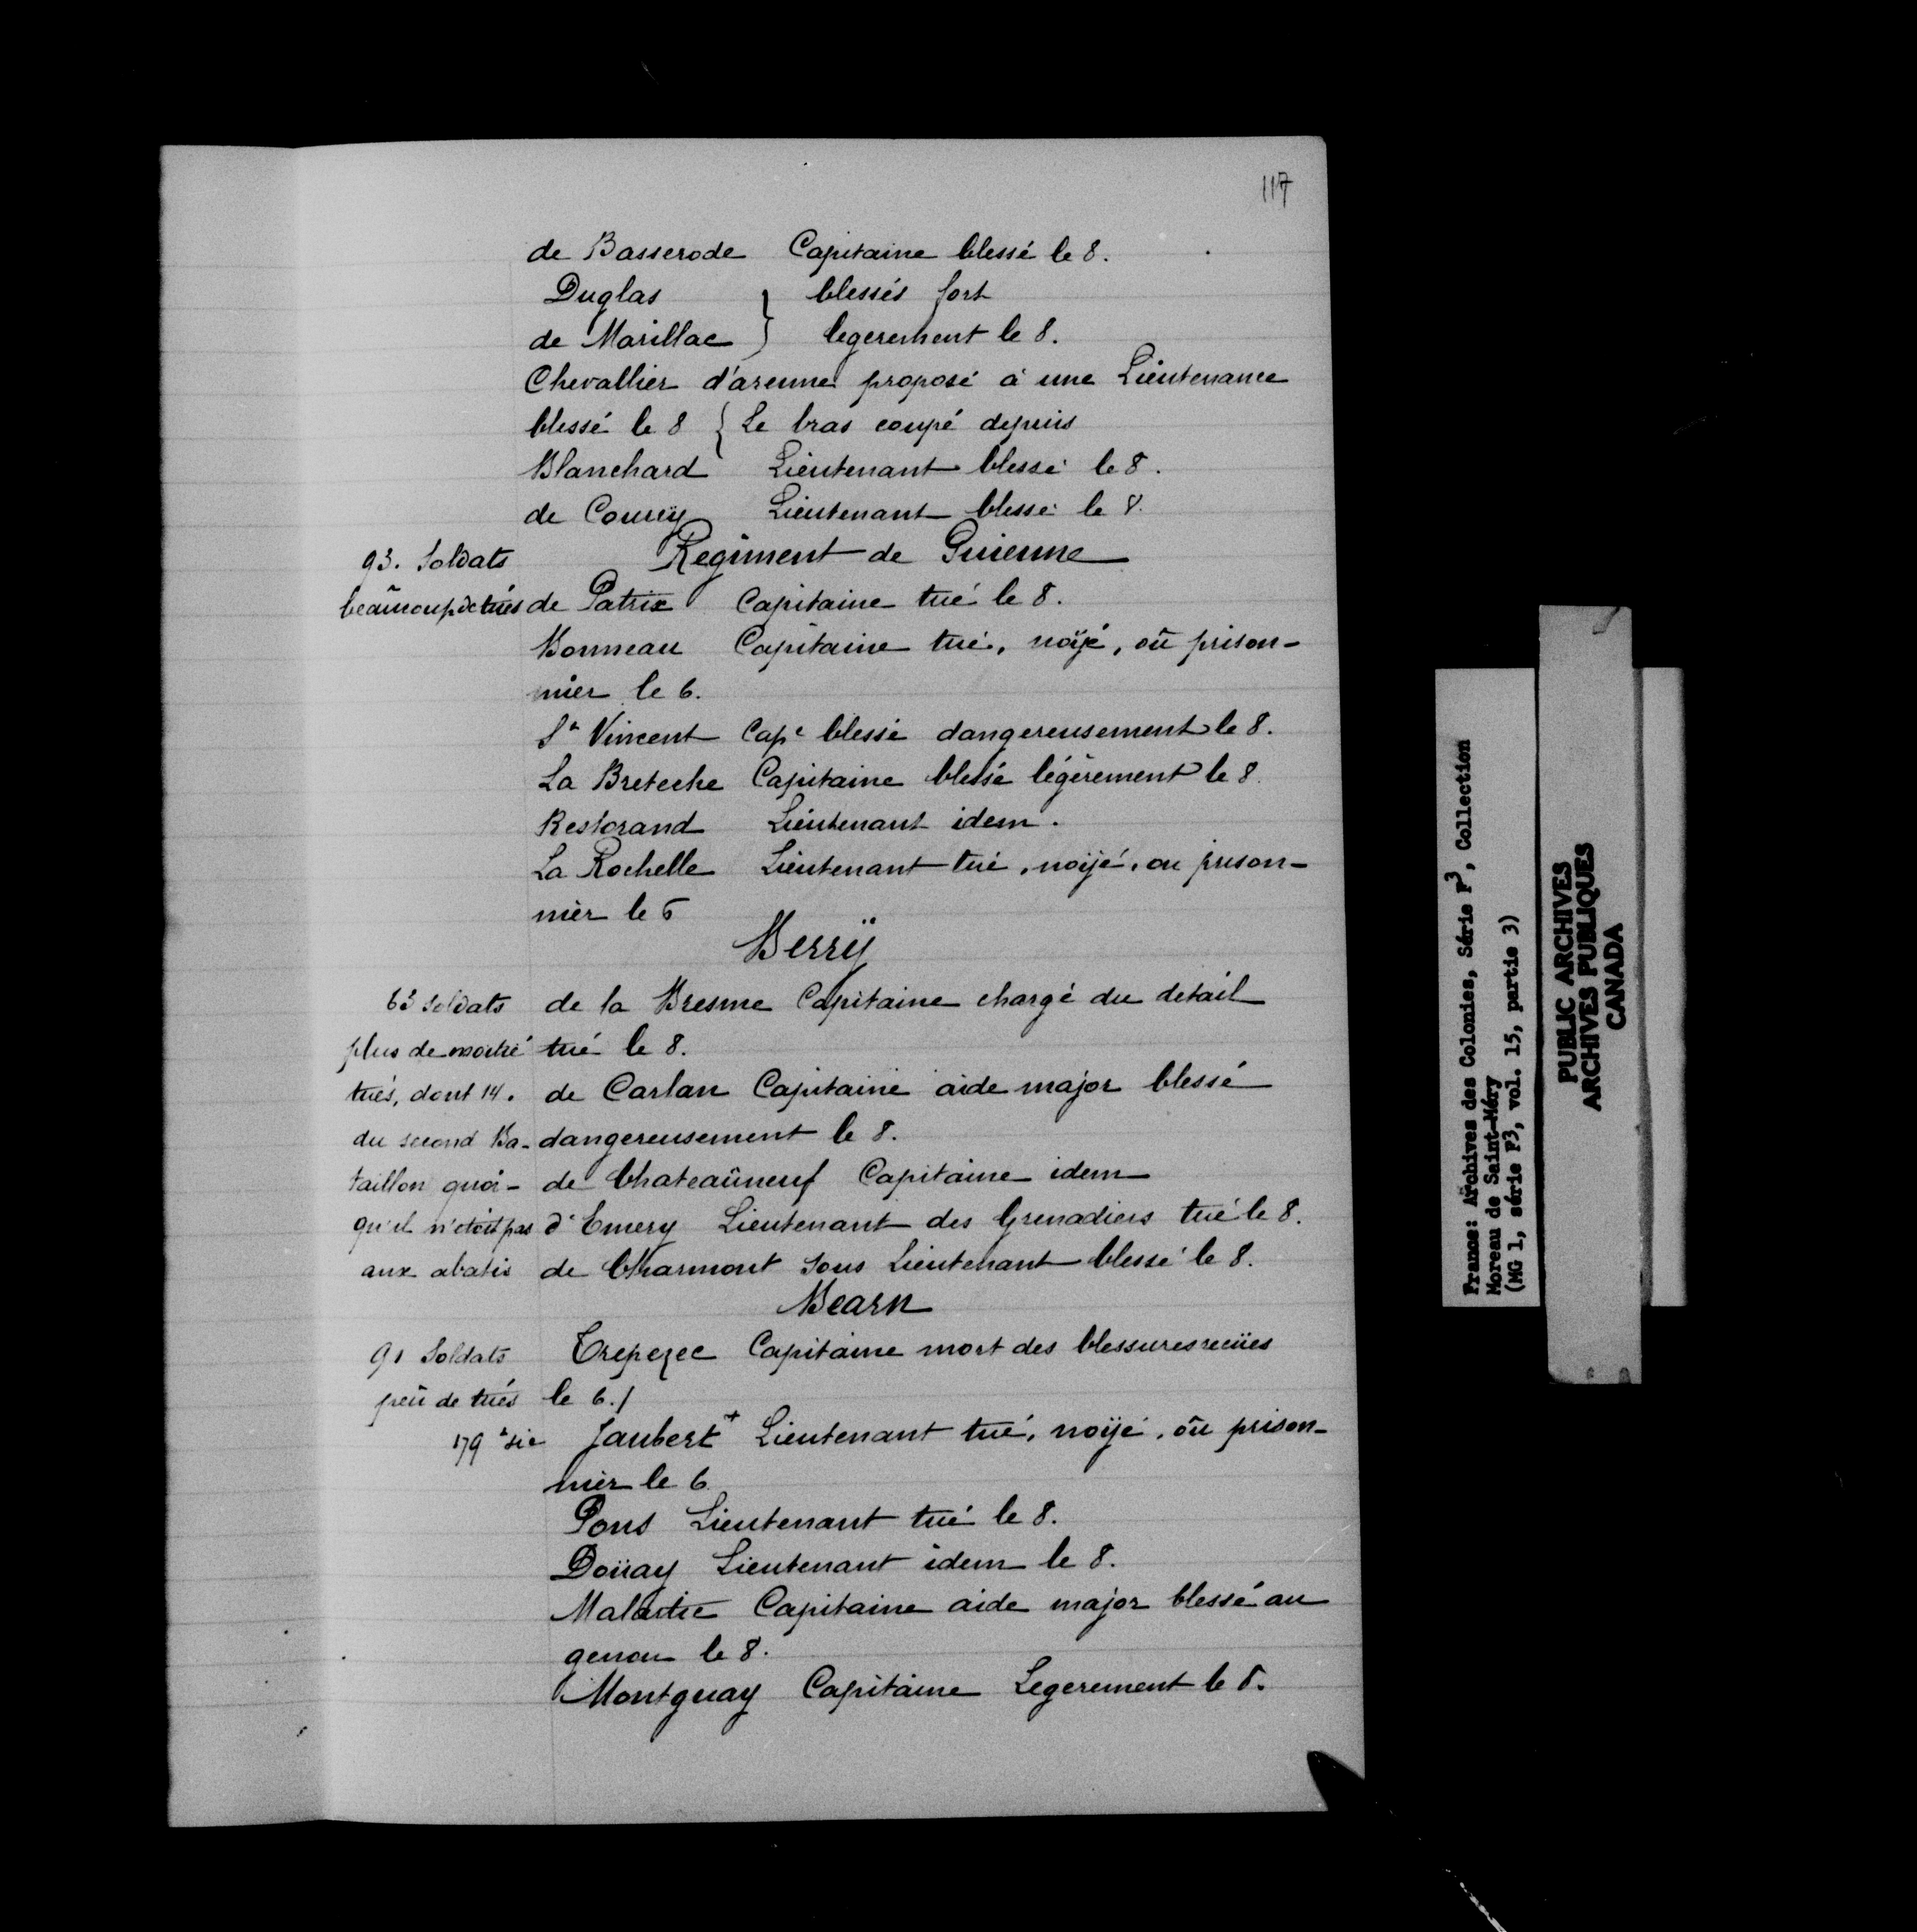 117
de Basserode Capitaine blessé le 8.
Duglas } blessés fort
de Marillac } legerement le 8.
Chevallier d'arenne proposé à une Lieutenance
blessé le 8 { Le bras coupé depuis
Blanchard Lieutenant blessé le 8.
de Courcÿ Lieutenant blessé le 8.
93. Soldats Regiment de Guienne
beaûcoup de tués de Patrix Capitaine tué le 8.
Bonneau Capitaine tué, noÿé, oû prison-
nier le 6.
St Vincent Cape blessé dangereusement le 8.
La Breteche Capitaine blessé légèrement le 8
Restorand Lieutenant idem.
La Rochelle Lieutenant tué, noÿé, ou prison-
nier le 6
Berrÿ
63 soldats de la Bresme Capitaine chargé du detail
plus de moitié tué le 8.
tués, dont 14. de Carlan Capitaine aide major blessé
du second Ba- dangereusement le 8.
taillon quoi- de Chateaûneuf Capitaine idem
qu'il n'etoit pas d'Emery Lieutenant des Grenadiers tué le 8.
aux abatis de Charmont sous Lieutenant blessé le 8.
Bearn
91 Soldats Trepezec Capitaine mort des blessures recües
peû de tués le 6./
179 sic Jaubert + Lieutenant tué, noÿé, oû prison-
nier le 6
Pons Lieutenant tué le 8.
Doüay Lieutenant idem le 8.
Malartic Capitaine aide major blessé au
genou le 8.
Montguay Capitaine Legerement le 8.
France: Archives des Colonies, Série F3, Collection
Moreau de Saint-Méry
(MG 1, série F3, vol. 15, partie 3)
PUBLIC ARCHIVES
ARCHIVES PUBLIQUES
CANADA